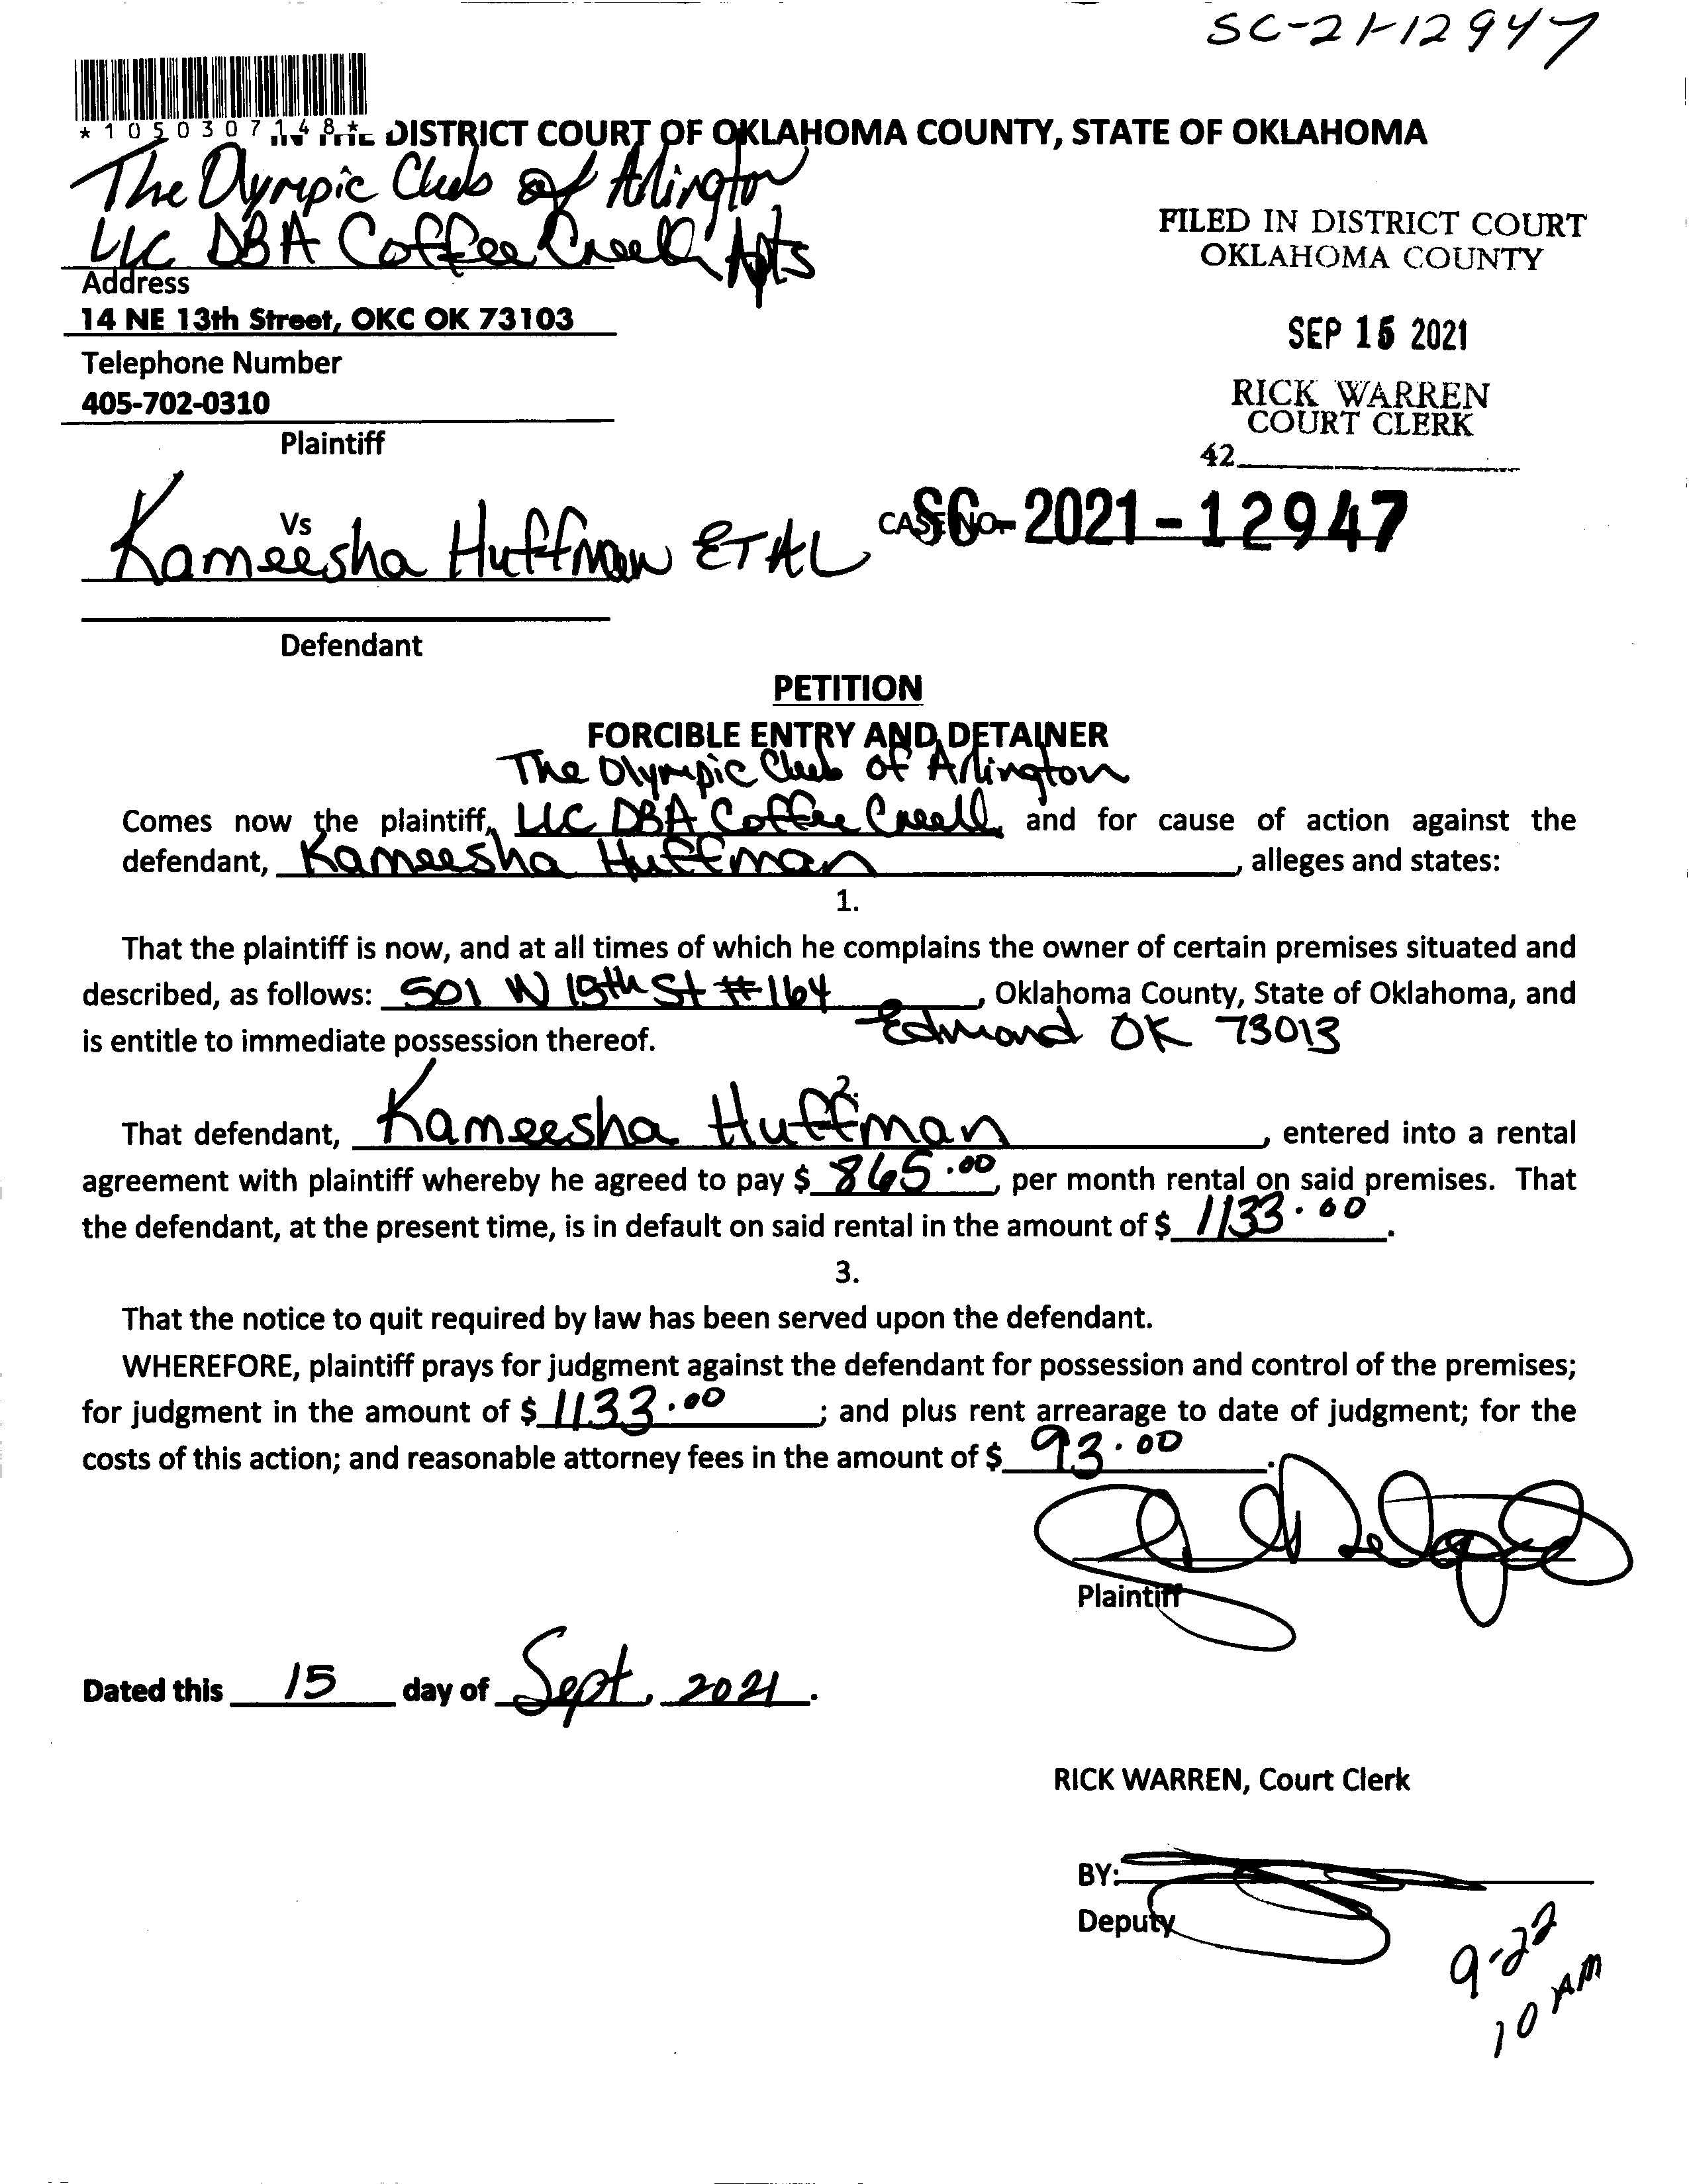 SC-21-12947
*1050307148*
IN THE DISTRICT COURT OF OKLAHOMA COUNTY, STATE OF OKLAHOMA
The Olympic Club of Arlington
LLC DBA Coffee Creek Apts
Address
14 NE 13th Street, OKC OK 73103
Telephone Number
405-702-0310
Plaintiff
FILED IN DISTRICT COURT
OKLAHOMA COUNTY
SEP 15 2021
RICK WARREN
COURT CLERK
42
Vs
Kameesha Huffman ETAL
CASE NO. SC-2021-12947
Defendant
PETITION
FORCIBLE ENTRY AND DETAINER
The Olympic Club of Arlington
Comes now the plaintiff, LLC DBA Coffee Creek, and for cause of action against the
defendant, Kameesha Huffman, alleges and states:
1.
That the plaintiff is now, and at all times of which he complains the owner of certain premises situated and
described, as follows: 501 W 15th St #164, Oklahoma County, State of Oklahoma, and
is entitle to immediate possession thereof. Edmond OK 73013
2.
That defendant, Kameesha Huffman, entered into a rental
agreement with plaintiff whereby he agreed to pay $ 865.00, per month rental on said premises. That
the defendant, at the present time, is in default on said rental in the amount of $ 1133.00.
3.
That the notice to quit required by law has been served upon the defendant.
WHEREFORE, plaintiff prays for judgment against the defendant for possession and control of the premises;
for judgment in the amount of $ 1133.00; and plus rent arrearage to date of judgment; for the
costs of this action; and reasonable attorney fees in the amount of $ 93.00.
Plaintiff
Dated this 15 day of Sept, 2021.
RICK WARREN, Court Clerk
BY:
Deputy
9-22
10 AM